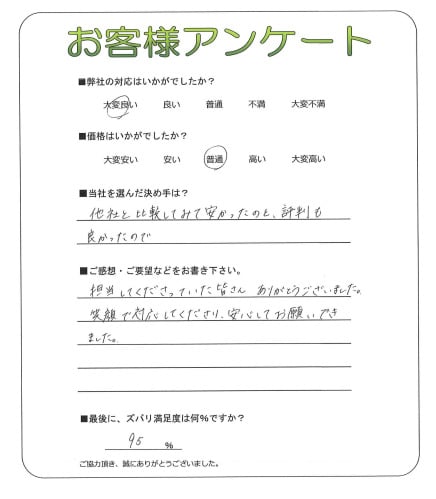 お客様アンケート
■弊社の対応はいかがでしたか?
大変良い 良い 普通 不満 大変不満
■価格はいかがでしたか?
大変安い 安い 普通 高い 大変高い
■当社を選んだ決め手は?
他社と比較してみて安かったのと、評判も
良かったので
■ご感想・ご要望などをお書き下さい。
担当してくださっていた皆さん ありがとうございました。
笑顔で対応してくださり、安心してお願いでき
ました。
■最後に、ズバリ満足度は何%ですか?
95 %
ご協力頂き、誠にありがとうございました。